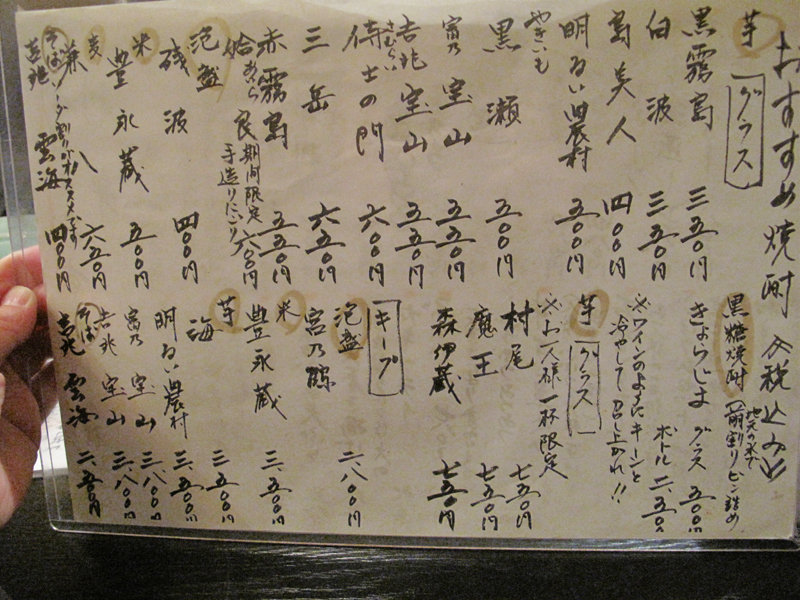 おすすめ焼酎 (税込み)
芋 [グラス]
黒霧島 三五〇円
白波 三五〇円
島美人 四〇〇円
明るい農村 五〇〇円
やきいも
黒瀬 五〇〇円
富乃宝山 五五〇円
吉兆宝山 五五〇円
さむらい
侍士の門 六〇〇円
三岳 六五〇円
赤霧島 五五〇円
あいら
姶良 期間限定 手造りにごり 六〇〇円
泡盛
磯波 四〇〇円
米
豊永蔵 五〇〇円
麦
兼八 六五〇円
そば(ソーダ割りがオススメです)
吉兆雲海 四〇〇円
黒糖焼酎 (地元の水で前割りビン詰め)
きょらじま グラス 五〇〇円
ボトル 二、五〇〇
※ワインのようにキーンと
冷やして召し上がれ!!
芋 [グラス]
※お一人様一杯限定
村尾 七五〇円
魔王 七五〇円
森伊蔵 七五〇円
[キープ]
泡盛
宮乃鶴 二、八〇〇円
米
豊永蔵 三、五〇〇円
芋
海 三、五〇〇円
明るい農村 三、五〇〇円
富乃宝山 三、八〇〇円
吉兆宝山 三、八〇〇円
そば
吉兆雲海 二、五〇〇円